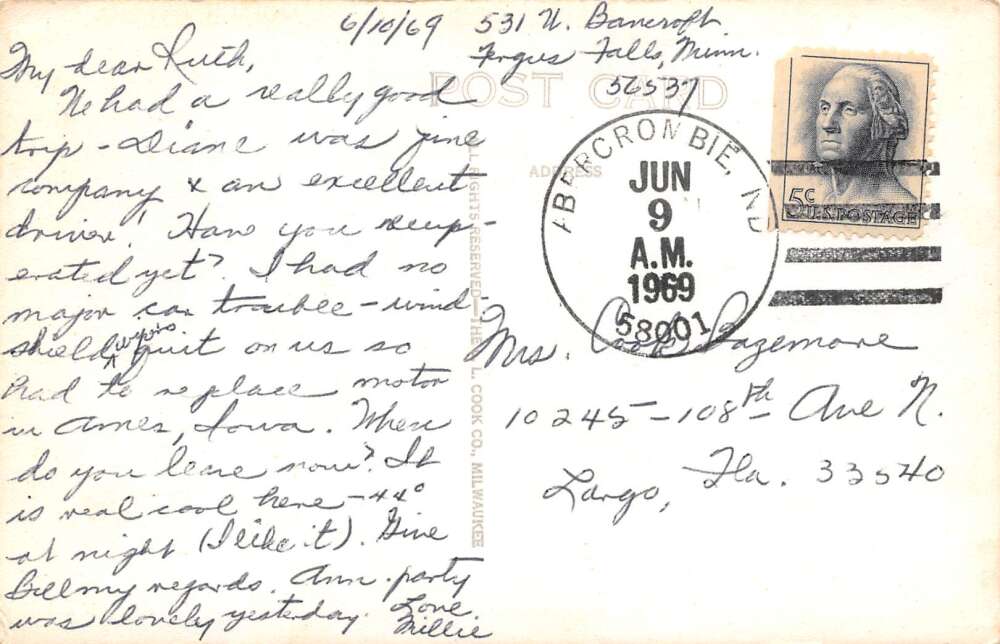 6/10/69
531 N. Bancroft
Fergus Falls, Minn.
56537
My dear Ruth,
We had a really good
trip - Diane was fine
company & an excellent
driver! Have you recup-
erated yet? I had no
major car trouble - wind-
shield wipers quit on us so
had to replace motor
in Ames, Iowa. When
do you leave now? It
is real cool here - 44°
at night (I like it). Give
Bill my regards. Ann. party
was lovely yesterday. Love,
Millie
POST CARD
ADDRESS
ALL RIGHTS RESERVED - THE L. L. COOK CO., MILWAUKEE
ABERCROMBIE, ND
JUN
9
A.M.
1969
58001
5c
U.S. POSTAGE
Mrs. Bazemore
10245 - 108th Ave N.
Largo, Fla. 33540